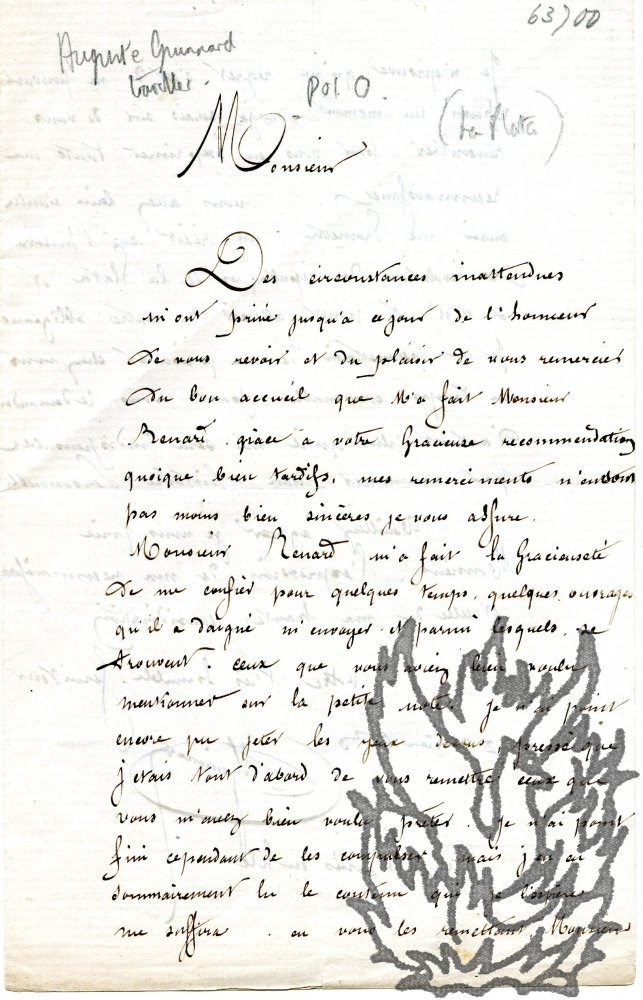 63)00
Auguste Guinnard
Pol O.
(La Plata)
Monsieur
Des circonstances inattendues
m'ont privé jusqu'à ce jour de l'honneur
de vous revoir et du plaisir de vous remercier
du bon accueil que m'a fait Monsieur
Renard grâce à votre gracieuse recommendation
quoique bien tardifs, mes remerciments n'en sont
pas moins bien sincères je vous assure.
Monsieur Renard m'a fait la gracieuseté
de me confier pour quelques temps, quelques ouvrages
qu'il a daigné m'envoyer et parmi lesquels se
trouvent ceux que vous aviez bien voulu
mentionner sur la petite note. je n'ai point
encore pu jeter les yeux dessus, pressé que
j'étais tout d'abord de vous remettre ceux que
vous m'avez bien voulu prêter. je n'ai point
fini cependant de les compulser mais j'en ai
sommairement lu le contenu qui je l'espère
me suffira. en vous les remettant Monsieur